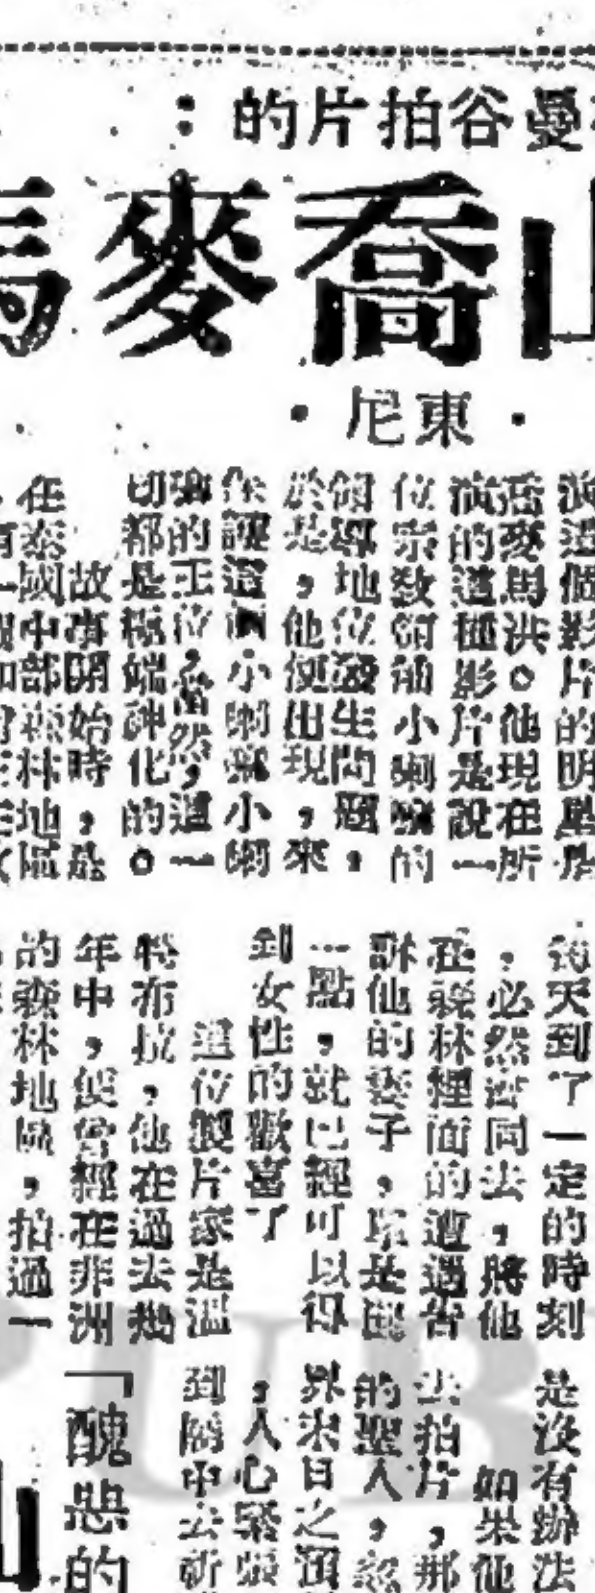 曼谷拍片的：
山喬麥馬
·東尼·
演這個影片的明星是
岳麥馬洪。他現在所
演的這種影片是說一
位宗教領袖小喇嘛的
領導地位發生問題，
於是，他便出現，來
保護這個小喇嘛小喇
嘛的王位，當然，這一
切都是極端神化的。
故事開始時，是
在泰國中部森林地區
每天到了一定的時刻
，必然會同去，將他
在森林裡面的遭遇告
訴他的妻子，
一點，就已經可以得
到女性的歡喜了
這位製片家是溫
特布拉，他在過去
年中，便曾經在非洲
的森林地區，拍過一
是沒有辦法
如果他
去拍片，那
的聖人，
界末日之
，人心緊張
到廟中去祈
「醜惡的
PUB